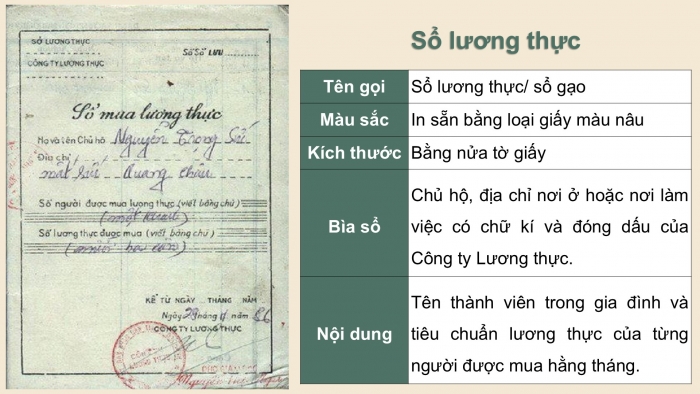 SỞ LƯƠNG THỰC
CÔNG TY LƯƠNG THỰC
Số Sổ LƯU
Sổ mua lương thực
Họ và tên Chủ hộ Nguyễn Trọng
Địa chỉ
Quang
Số người được mua lương thực (viết bằng chữ)
Số lương thực được mua (viết bằng chữ)
KỂ TỪ NGÀY THÁNG NĂM
Ngày 29 tháng 4 năm 86
CÔNG TY LƯƠNG THỰC
Sổ lương thực
Tên gọi Sổ lương thực/ sổ gạo
Màu sắc In sẵn bằng loại giấy màu nâu
Kích thước Bằng nửa tờ giấy
Bìa sổ
Chủ hộ, địa chỉ nơi ở hoặc nơi làm
việc có chữ kí và đóng dấu của
Công ty Lương thực.
Nội dung
Tên thành viên trong gia đình và
tiêu chuẩn lương thực của từng
người được mua hằng tháng.